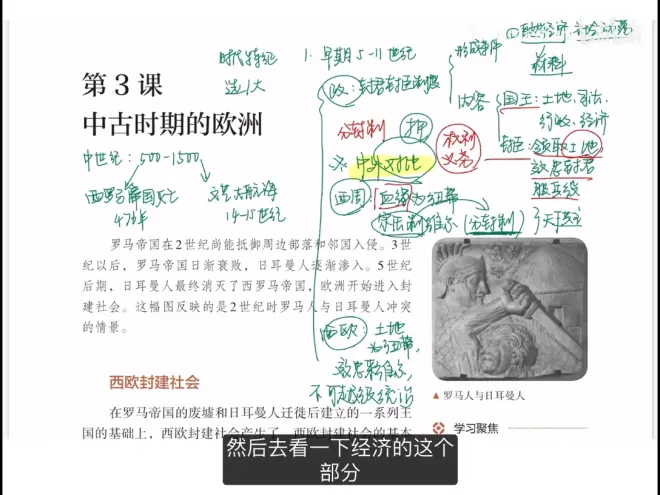 第3课
中古时期的欧洲
罗马帝国在2世纪尚能抵御周边部落和邻国入侵。3世
纪以后，罗马帝国日渐衰败，日耳曼人逐渐渗入。5世纪
后期，日耳曼人最终消灭了西罗马帝国，欧洲开始进入封
建社会。这幅图反映的是2世纪时罗马人与日耳曼人冲突
的情景。
西欧封建社会
在罗马帝国的废墟和日耳曼人迁徙后建立的一系列王
国的基础上，西欧封建社会产生了。西欧封建社会的基本
▲ 罗马人与日耳曼人
学习聚焦
时代特征
选1大
中世纪：500-1500
西罗马帝国灭亡
476年
大航海
14-15世纪
1. 早期5-11世纪
政：封君封臣制度
分封制
押
权利
义务
※ 中外对比
西周：血缘为纽带
宗法制维系（分封制）
天下共主
西欧：土地
为纽带，
效忠
不可越级统治
形成条件
内容
国王：土地、司法、
行政、经济
封臣：领取土地
效忠封君
服兵役
然后去看一下经济的这个
部分